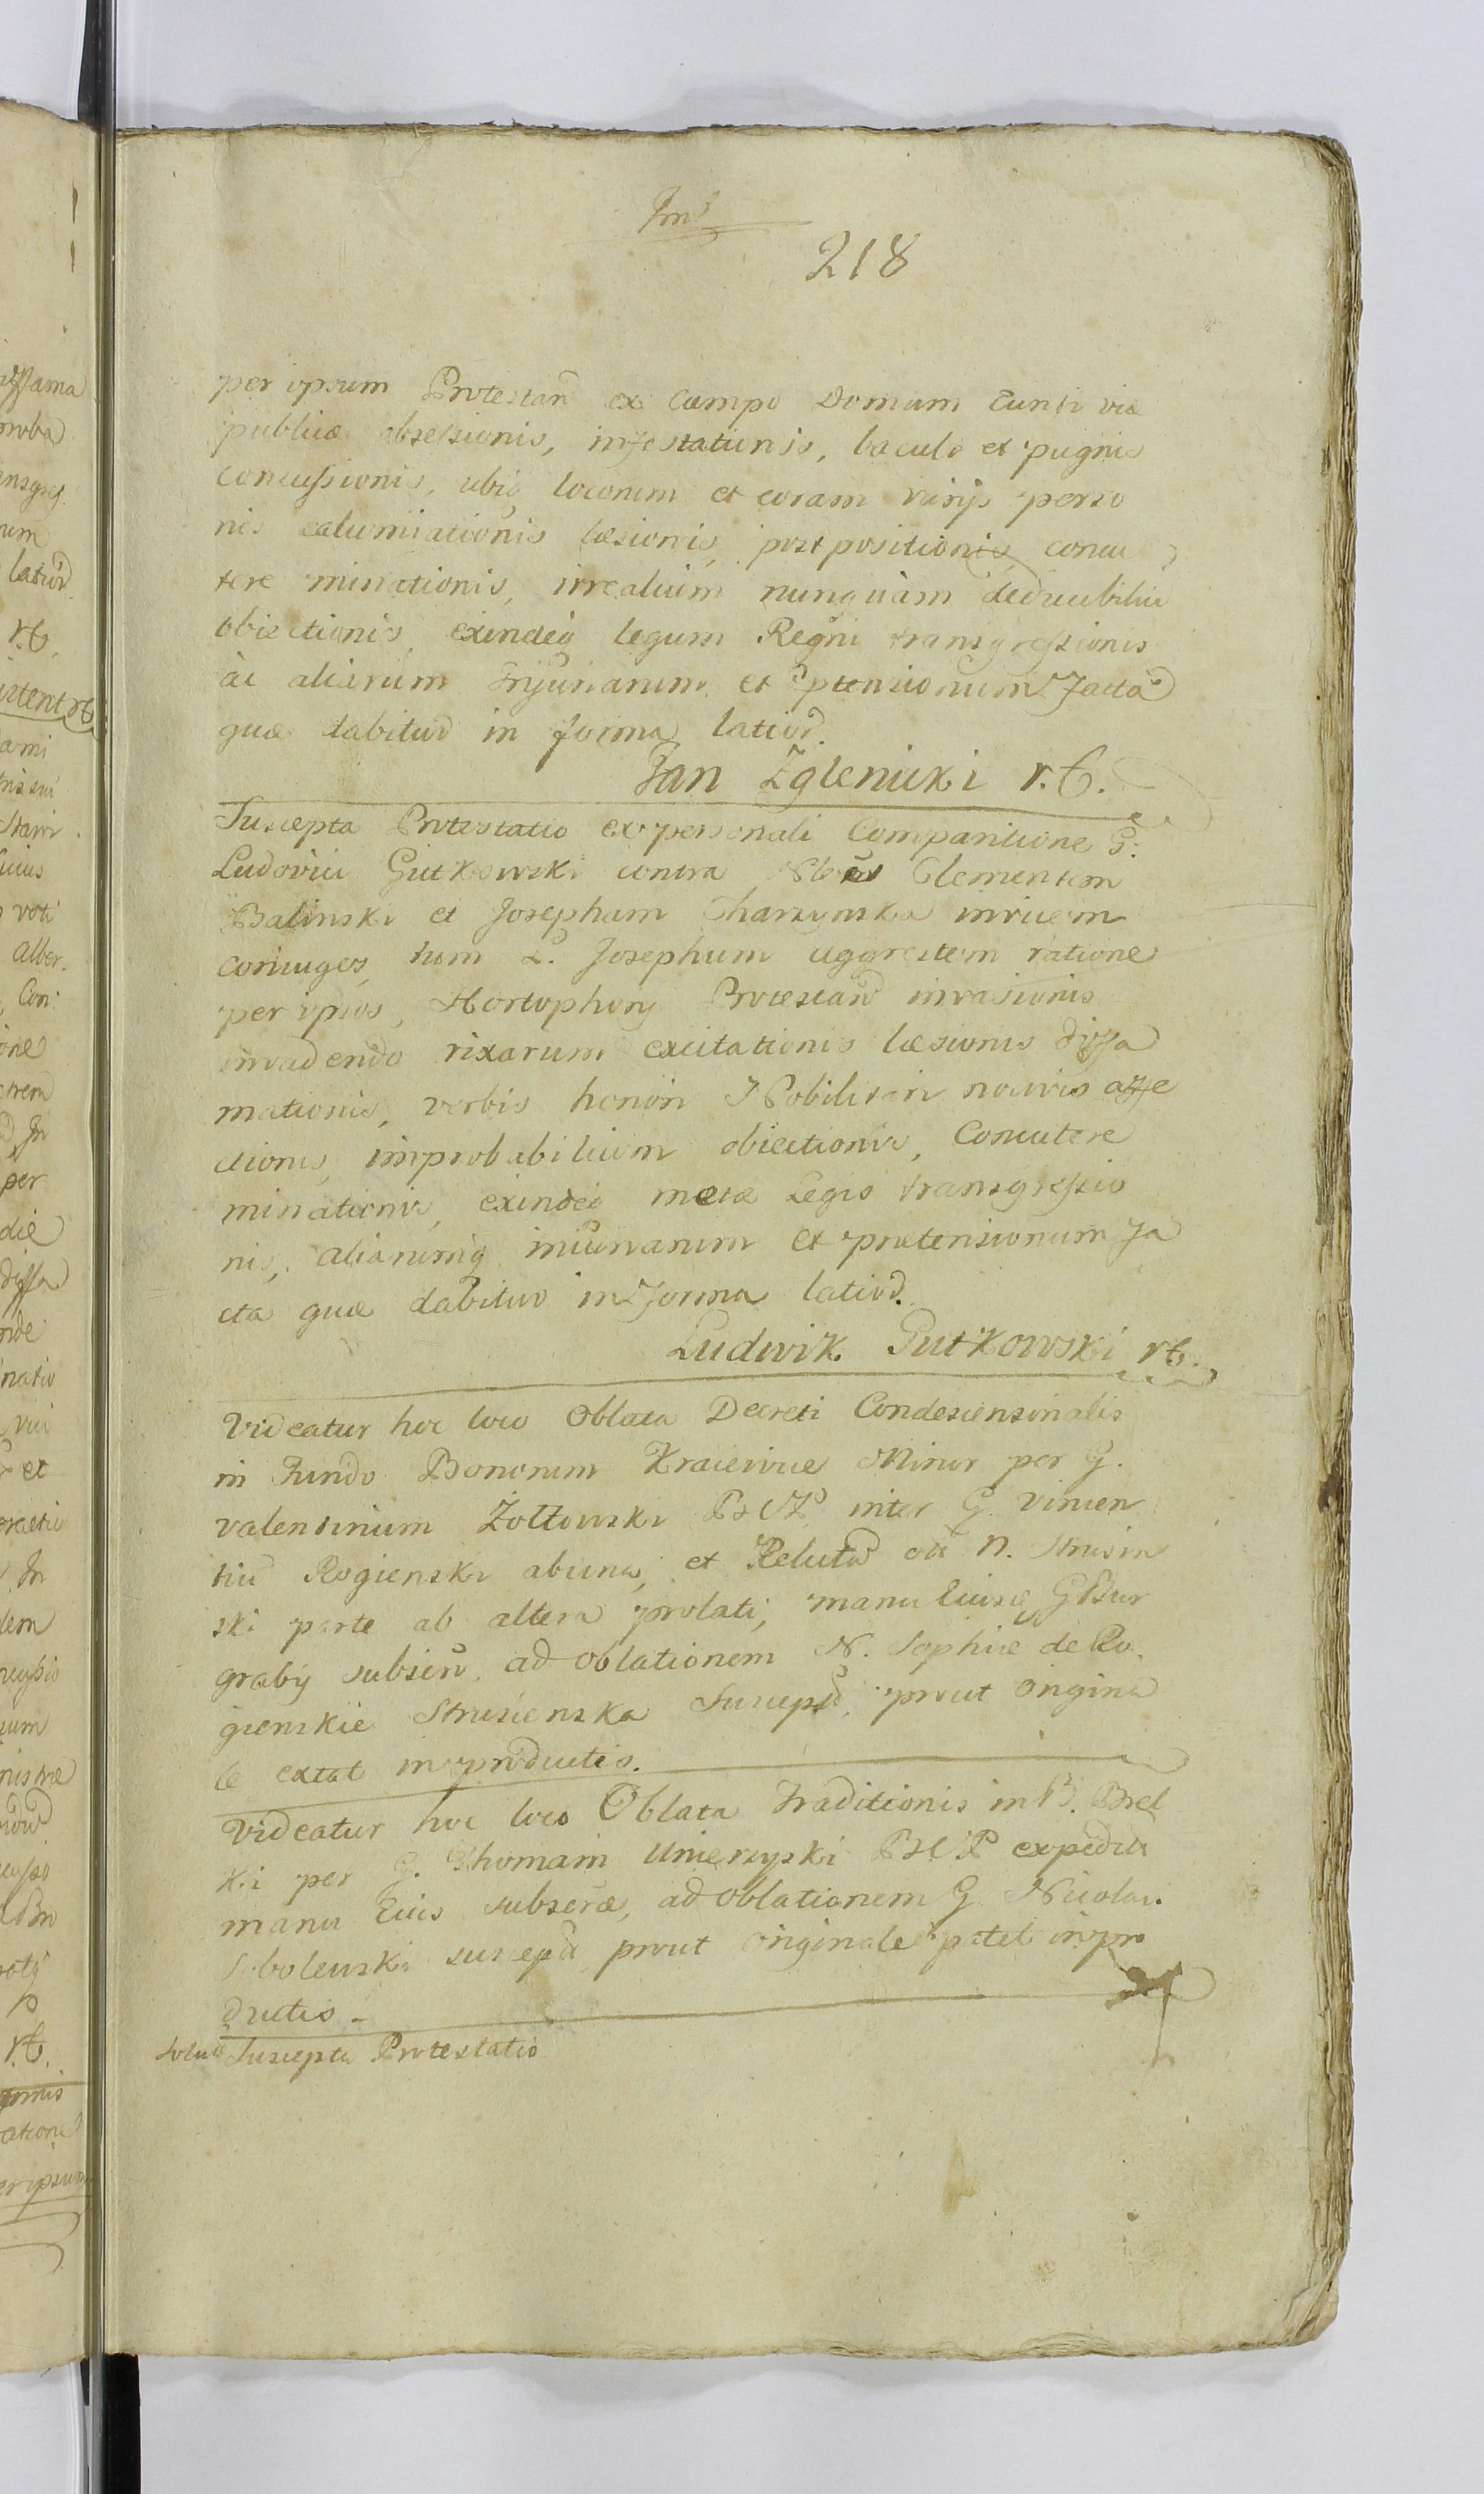 218
per ipsum Protestan ex Campo Domum Eunti viæ
publicæ obsessionis, infestationis, baculo et pugnis
concussionis, ubiq locorum et coram varijs perso
nis calumniationis læsionis, postpositionis, concu
tere minationis, irrealium nunquam deducibiliu
obiectionis, exindeq legum Regni transgressionis
ac aliarum Injuriarum et ptensionum Facta
quæ dabitur in forma latiori.
Jan Zglenicki r.b.
Suscepta Protestatio ex personali Comparitione G:
Ludovici Gutkowski contra Nbles Clementem
Balinski et Josepham Charzynska invicem
coniuges, tum L. Josephum aggrestem ratione
per ipsos, Hortophory Protestan invasionis
invadendo rixarum excitationis læsionis diffa
mationis, verbis honori Nobilitari nocivis affe
ctionis, improbabilium obiectionis, Concutere
minationis, exindeq metæ Legis transgressio
nis, aliarumq iniuriarum et prætensionum Fa
cta quæ dabitur in forma latiori.
Ludwik Gutkowski rb.
Videatur hoc loco Oblata Decreti Condescensionalis
in Fundo Bonorum Kraiewice Minor per G.
Valentinum Żołtowski inter G. Vincen
tiu Rogienski ab una, et N. Strusin
ski parte ab altera prolati, manu Eiusq GBur
graby subscri, ad oblationem N. Sophiæ de Ro
gienskie Strusienska Suscepti, prout origina
le extat in productis.
Videatur hoc loco Oblata Traditionis in B. Biel
ki per G. Thomam Unierzyski expedita
manu Eius subscræ, ad oblationem G Nicolai
Sobolewski suscepta prout originale patet in pro
ductis.
Suscepta Protestatio